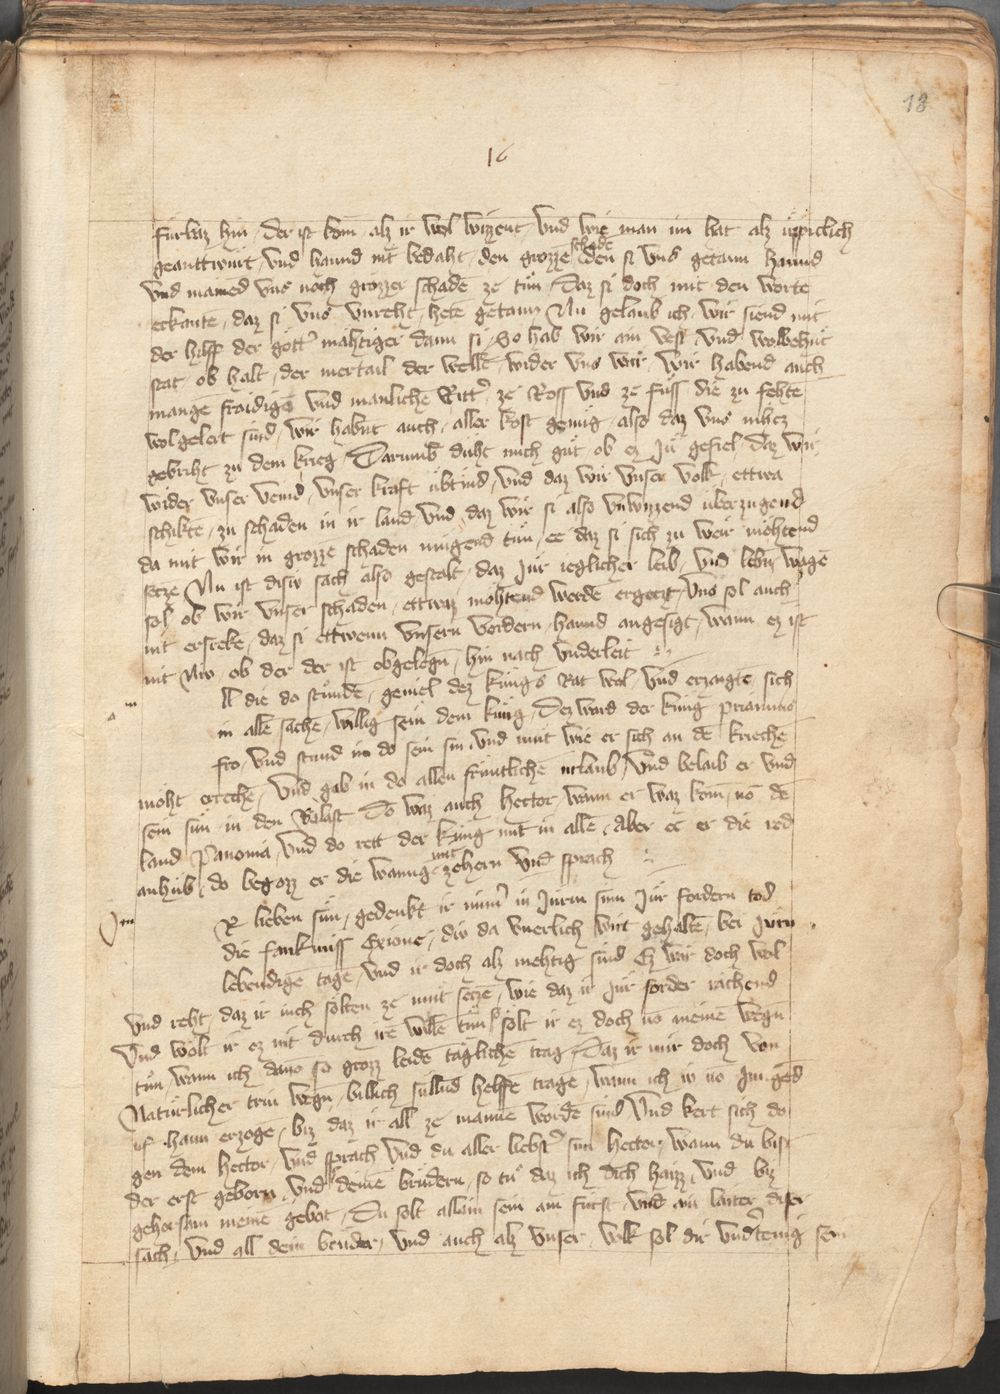 18
16
fürbaz hin / der ist kom̄ alz ir wol wizzent / Vnd wie man im hat alz üppiclich
geanttwürt / vnd haund nit bedaht / den grozzē schadē den si vns getann haund
Vnd mainēd vns noch grozzer schadē ze tůn / Daz si doch mit den worte
erkante / daz si vns vnreht / hetē getann Nu gelaub ich / wir siend mit
der hilff der gött mähtiger dann si / So hab wir ain vest vnd wolbehüt
stat / ob halt / der mertail der wellt / wider vns wär / Wir habend auch
mange fraidigē vnd manlichē Ritt ze Ross vnd ze füss die zu fehtē
wol gelert sind / Wir habnt auch / aller kost genüg / also daz vns nihcz
gebriht zu dem krieg / Darumb duht mich güt / ob ez Jü gefiel / daz wir
wider vnser veind / vnser kraft übtind / vnd daz wir vnser volk / ettwa
schikte / zu schaden in ir land vnd / daz wir si also vnwizzend überzugend
da mit wir in grozze schaden mügend tün / ee daz si sich zu wer möhtend
setze Nu ist disiv sach also gestalt / daz Jür ieglicher leib / vnd lebn wagē
sol / ob wir vnser schaden / ettwaz möhtend werdē ergeczt / Vns sol auch
nit erstreke / daz si ettwenn vnsern vordern / haund angesigt / wann ez ist
nit niv / ob der der ist obgelegn / hin nach vnderleit
ll die do stůndē / geuiel dez künigs Rat wol / vnd erzaigtē sich
in allē sachē / willig sein dem küng / Dez ward der küng priamus
fro / Vnd stund im do sein sin / vnd mut wie er sich an dē kriechē
moht rechē / Vnd gab in do allen früntlichē urlaub / Vnd belaib er vnd
sein sün in den Palast Do waz auch hector / wann er waz kom̄ / vō dē
land Panonia / Vnd do rett der küng mit in allē / Aber ee er die red
anhüb / do begozz er die wange mit zehern vnd sprach
R lieben sün / gedenkt ir nim̄ in Jürm sinn Jür fordern tod
die fanknüss Exione / div da vnerlich wirt gehaltē / bei Jüren
lebendigē tage / vnd ir doch alz mehtig sind Ez wär doch wol
vnd reht / daz ir iuch sölten ze mut setzē / wie daz ir Jür forder rächend
Vnd wölt ir ez nit durch irē willē tün / so sölt ir ez doch vō meinē wegn
tün / wann ich dauō so grozz leidē täglichē trag / Daz ir mir doch von
Natürlicher triu wegn / billich sülnd helffē tragē / wann ich iv vō Jüngēd
uf haun erzogē / biz daz ir all ze mannē wordē sind Vnd kert sich do
gen dem hector / vnd sprach Vnd du aller liebst sun hector / wann du bist
der erst geborn / vnd deinē brüdern / so tů daz ich dich haizz / vnd biz
gehorsam meinē gebot / Du solt allain sein ain fürst / vnd ain laiter diser
sach / Vnd all dein brüder / vnd auch alz vnser / volk sol dir vndtenig sein